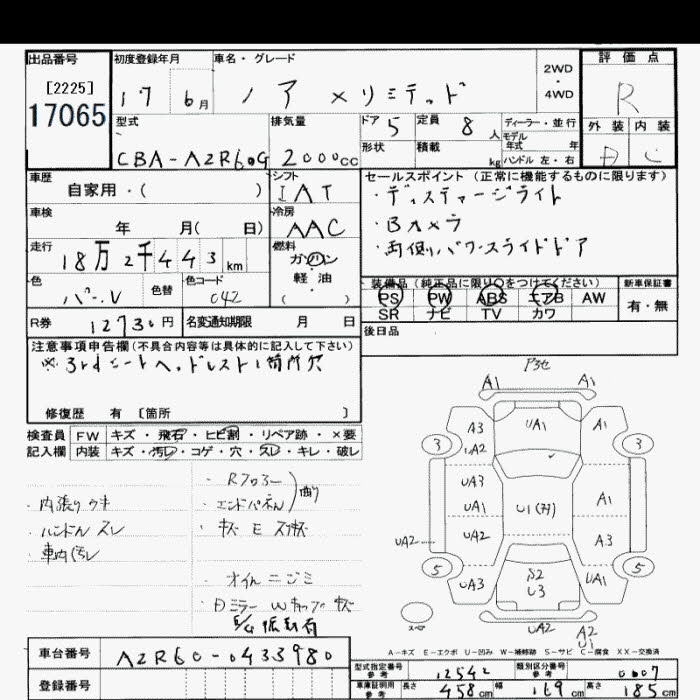 出品番号
[2225]
17065
初度登録年月
17 6月
車名・グレード
ノア Xリミテッド
2WD
・
4WD
評価点
R
型式
CBA-AZR60G
排気量
2000cc
ドア 5
定員 8人
形状
積載 kg
ディーラー・並行
モデル年式 年
ハンドル 左・右
外装 内装
D C
車歴
自家用・( )
シフト
IAT
セールスポイント(正常に機能するものに限ります)
・ディスチャージライト
・Bカメラ
・両側パワースライドドア
車検
年 月( 日)
冷房
AAC
走行
18万2千443km
燃料
ガソリン
軽・油
( )
色
パール
色替
色コード
042
装備品(純正品に限り○をつけてください)
PS PW ABS エアB AW
SR ナビ TV カワ
新車保証書
有・無
R券 12730円
名変通知期限 月 日
後日品
注意事項申告欄(不具合内容等は具体的に記入して下さい)
※3rdシートヘッドレスト1箇所欠
修復歴 有 [箇所 ]
検査員記入欄
FW キズ・飛石・ヒビ割・リペア跡・×要
内装 キズ・汚レ・コゲ・穴・スレ・キレ・破レ
・内張りウキ
・ハンドルスレ
・車内汚レ
・Rフロアー
・エンドパネル
曲り
・オイルニジミ
A1 A1
A3 UA1 A1
3 UA2 3
UA3
UA1 U1 A1
UA2 UA2 A3
5 5
UA3 S2 UA1
U3
UA2 A2
U1
スペア
A-キズ E-エクボ U-凹み W-補修跡 S-サビ C-腐食 XX-交換済
車台番号 AZR60-0433980
登録番号
型式指定番号 参考 12542
類別区分番号 参考 0607
車庫証明用 参考 長さ 458cm 幅 169cm 高さ 185cm